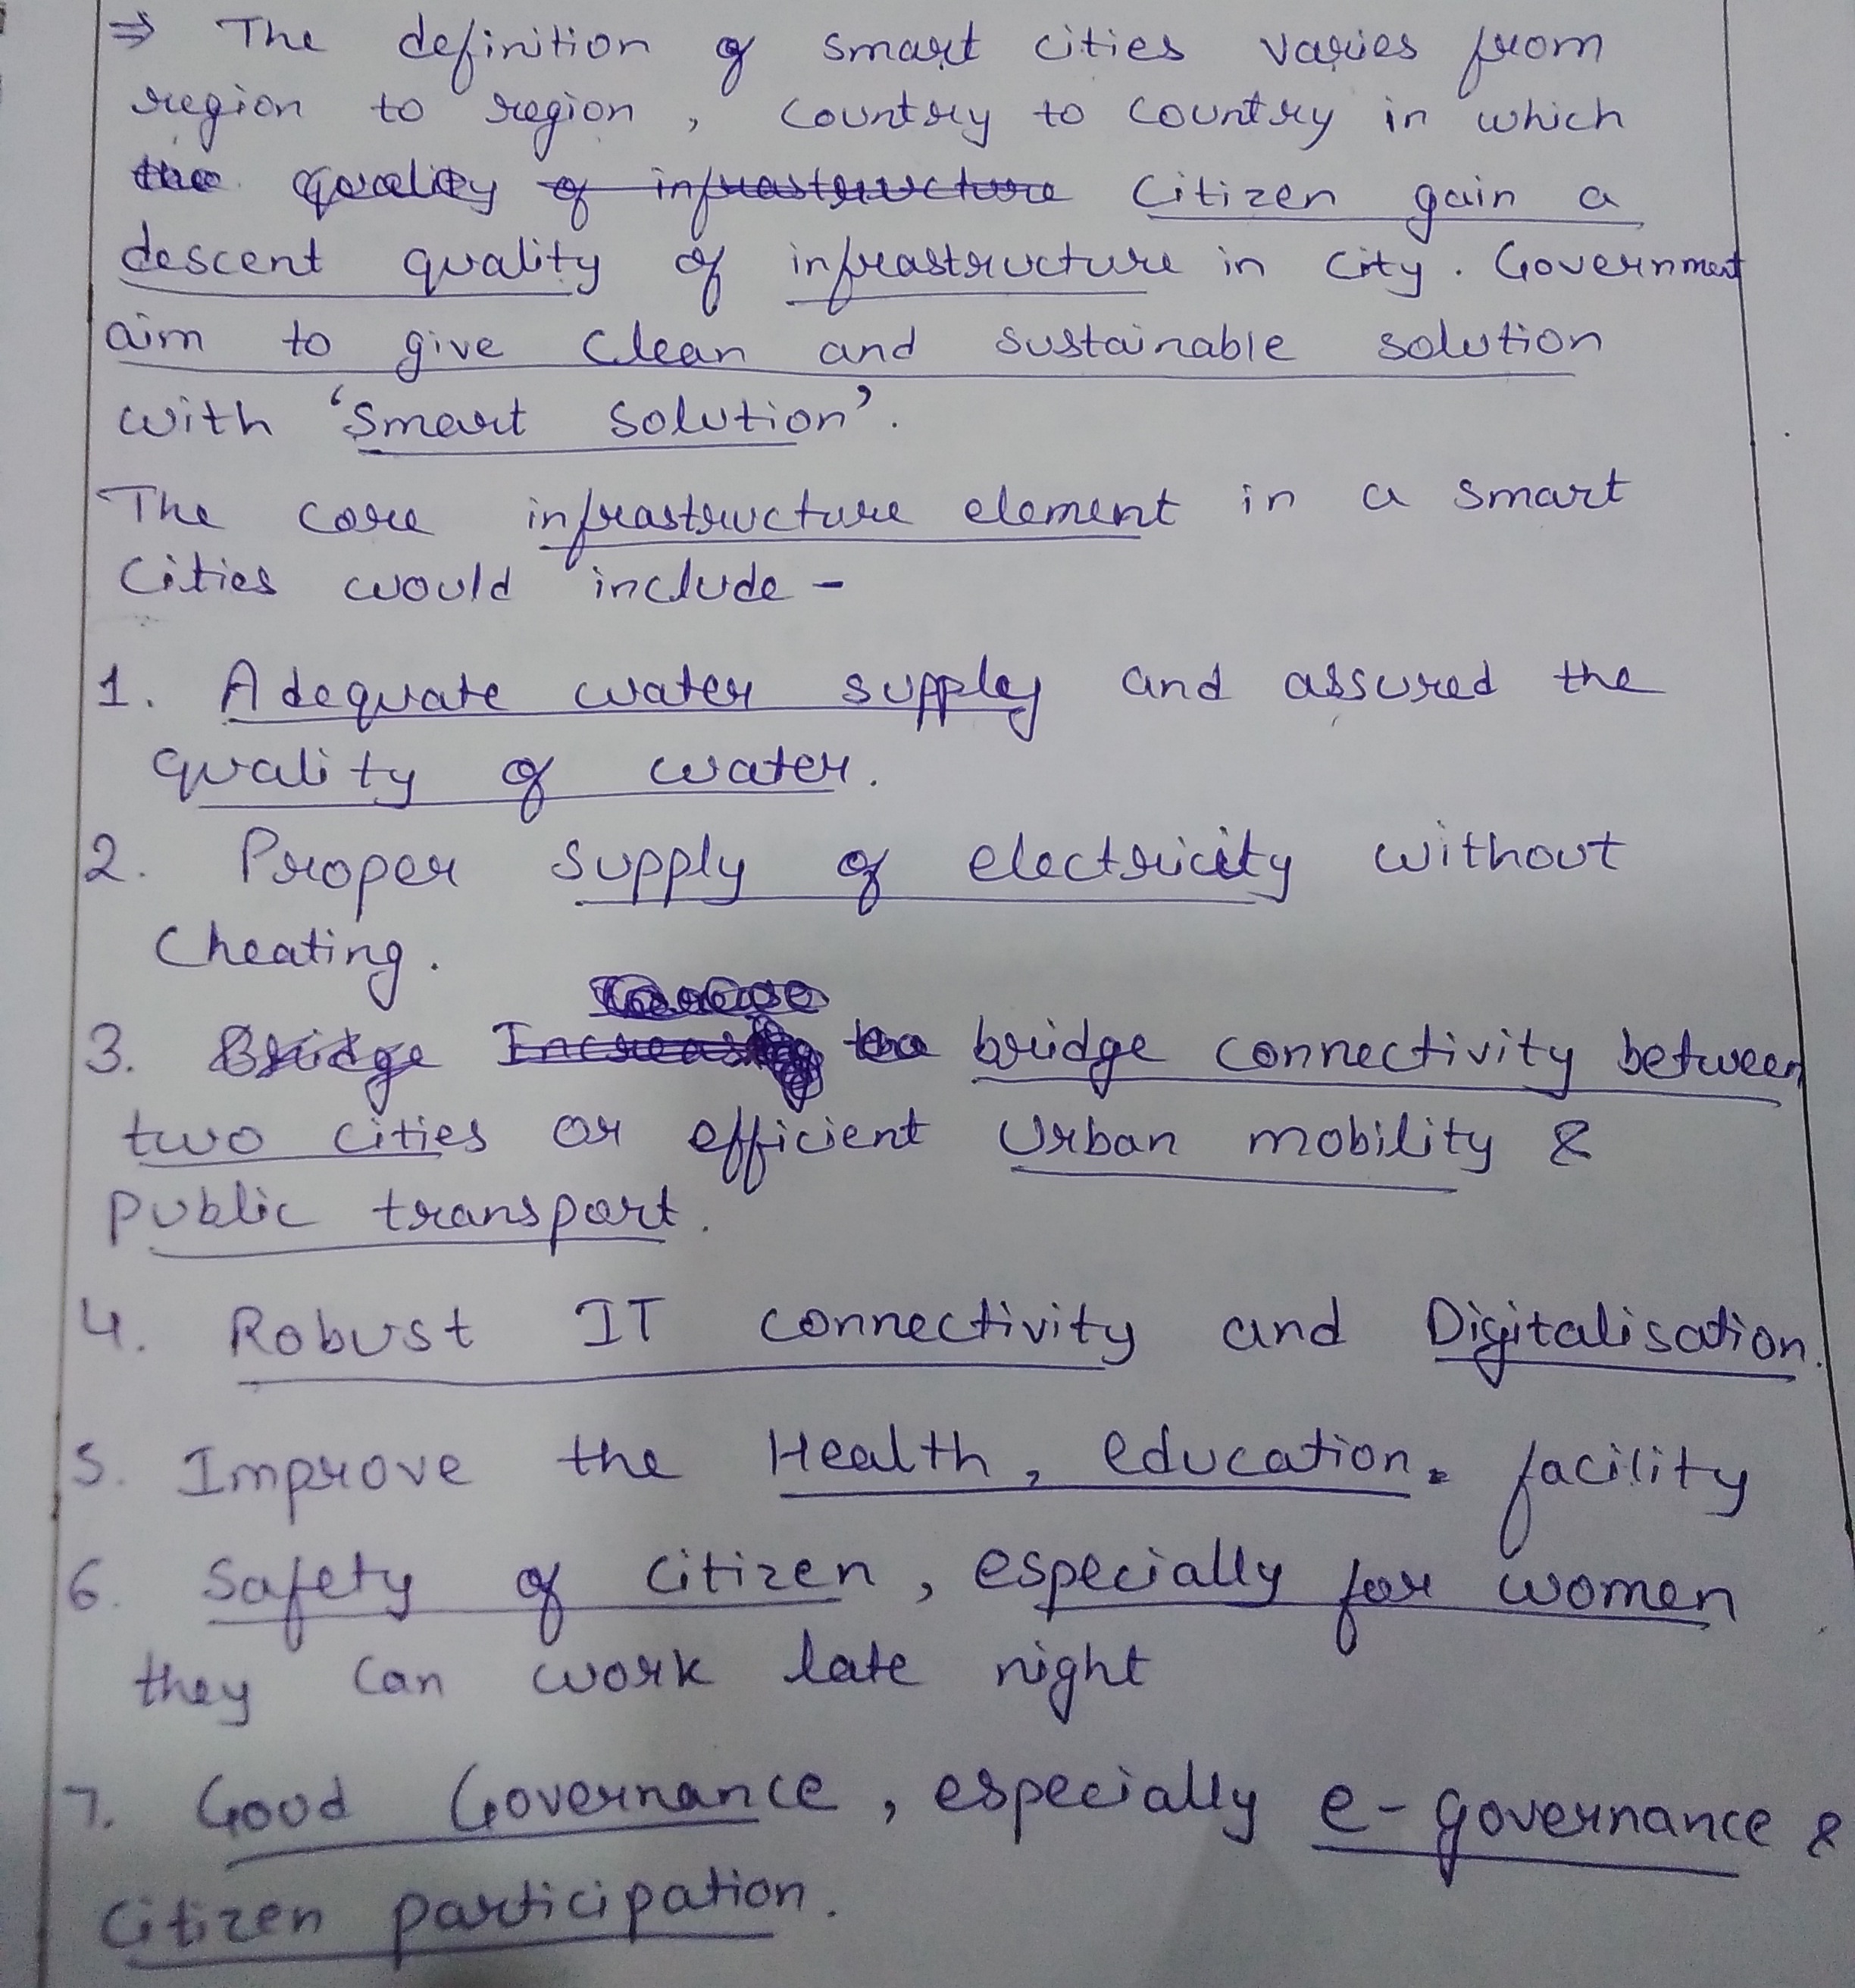 ⇒ The definition of smart cities varies from
region to region, country to country in which
the quality of infrastructure citizen gain a
descent quality of infrastructure in city. Government
aim to give clean and sustainable solution
with 'Smart solution'.
The core infrastructure element in a smart
cities would include -
1. Adequate water supply and assured the
quality of water.
2. Proper supply of electricity without
cheating.
3. Bridge bridge connectivity between
two cities or efficient Urban mobility &
public transport.
4. Robust IT connectivity and Digitalisation.
5. Improve the Health, education. facility
6. Safety of citizen, especially for women
they can work late night
7. Good Governance, especially e-governance &
citizen participation.